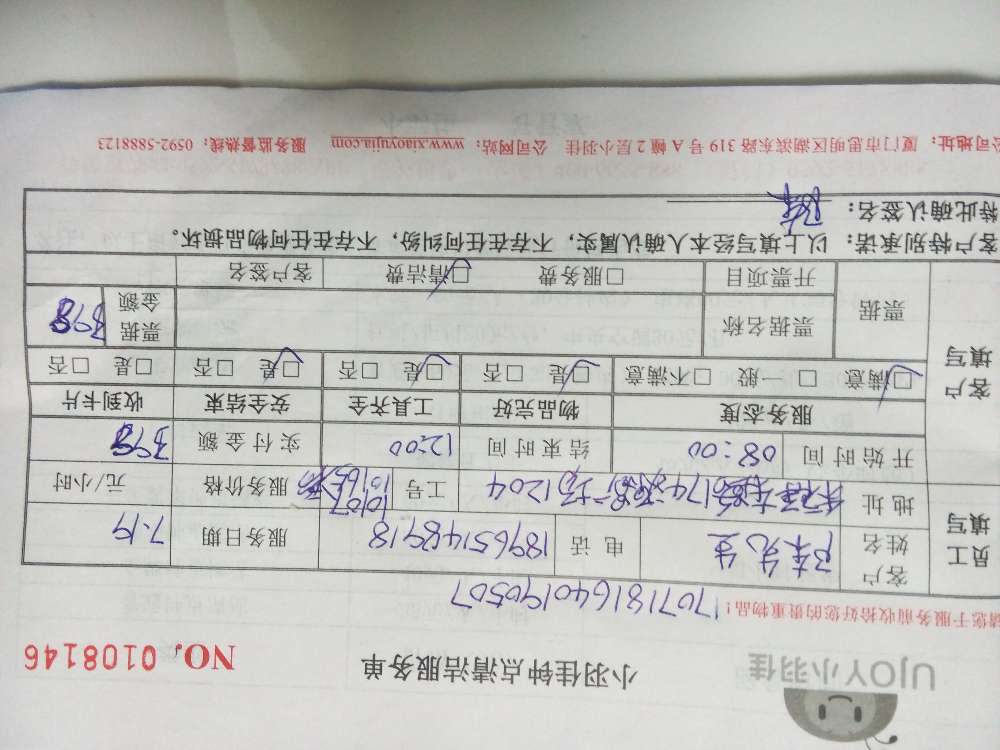 UJOY小羽佳
小羽佳钟点清洁服务单
NO. 0108146
请您于服务前收拾好您的贵重物品!
1707181640190507
员工填写
客户姓名 陈先生 电话 18965148918 服务日期 7.19
地址 174 广场1204 工号 10107 10165 服务价格 元/小时
开始时间 08:00 结束时间 12:00 实付金额 398
客户填写
服务态度 物品完好 工具齐全 安全结束 收到卡片
☑满意 □一般 □不满意 ☑是 □否 ☑是 □否 ☑是 □否 □是 □否
票据 票据名称 票据金额 398
开票项目 □服务费 ☑清洁费 客户签名
客户特别承诺:以上填写经本人确认属实,不存在任何纠纷,不存在任何物品损坏。
特此确认签名:陈
公司地址:厦门市思明区湖滨东路 319 号 A 幢 2 层小羽佳 公司网站:www.xiaoyujia.com 服务监督热线:0592-5888123